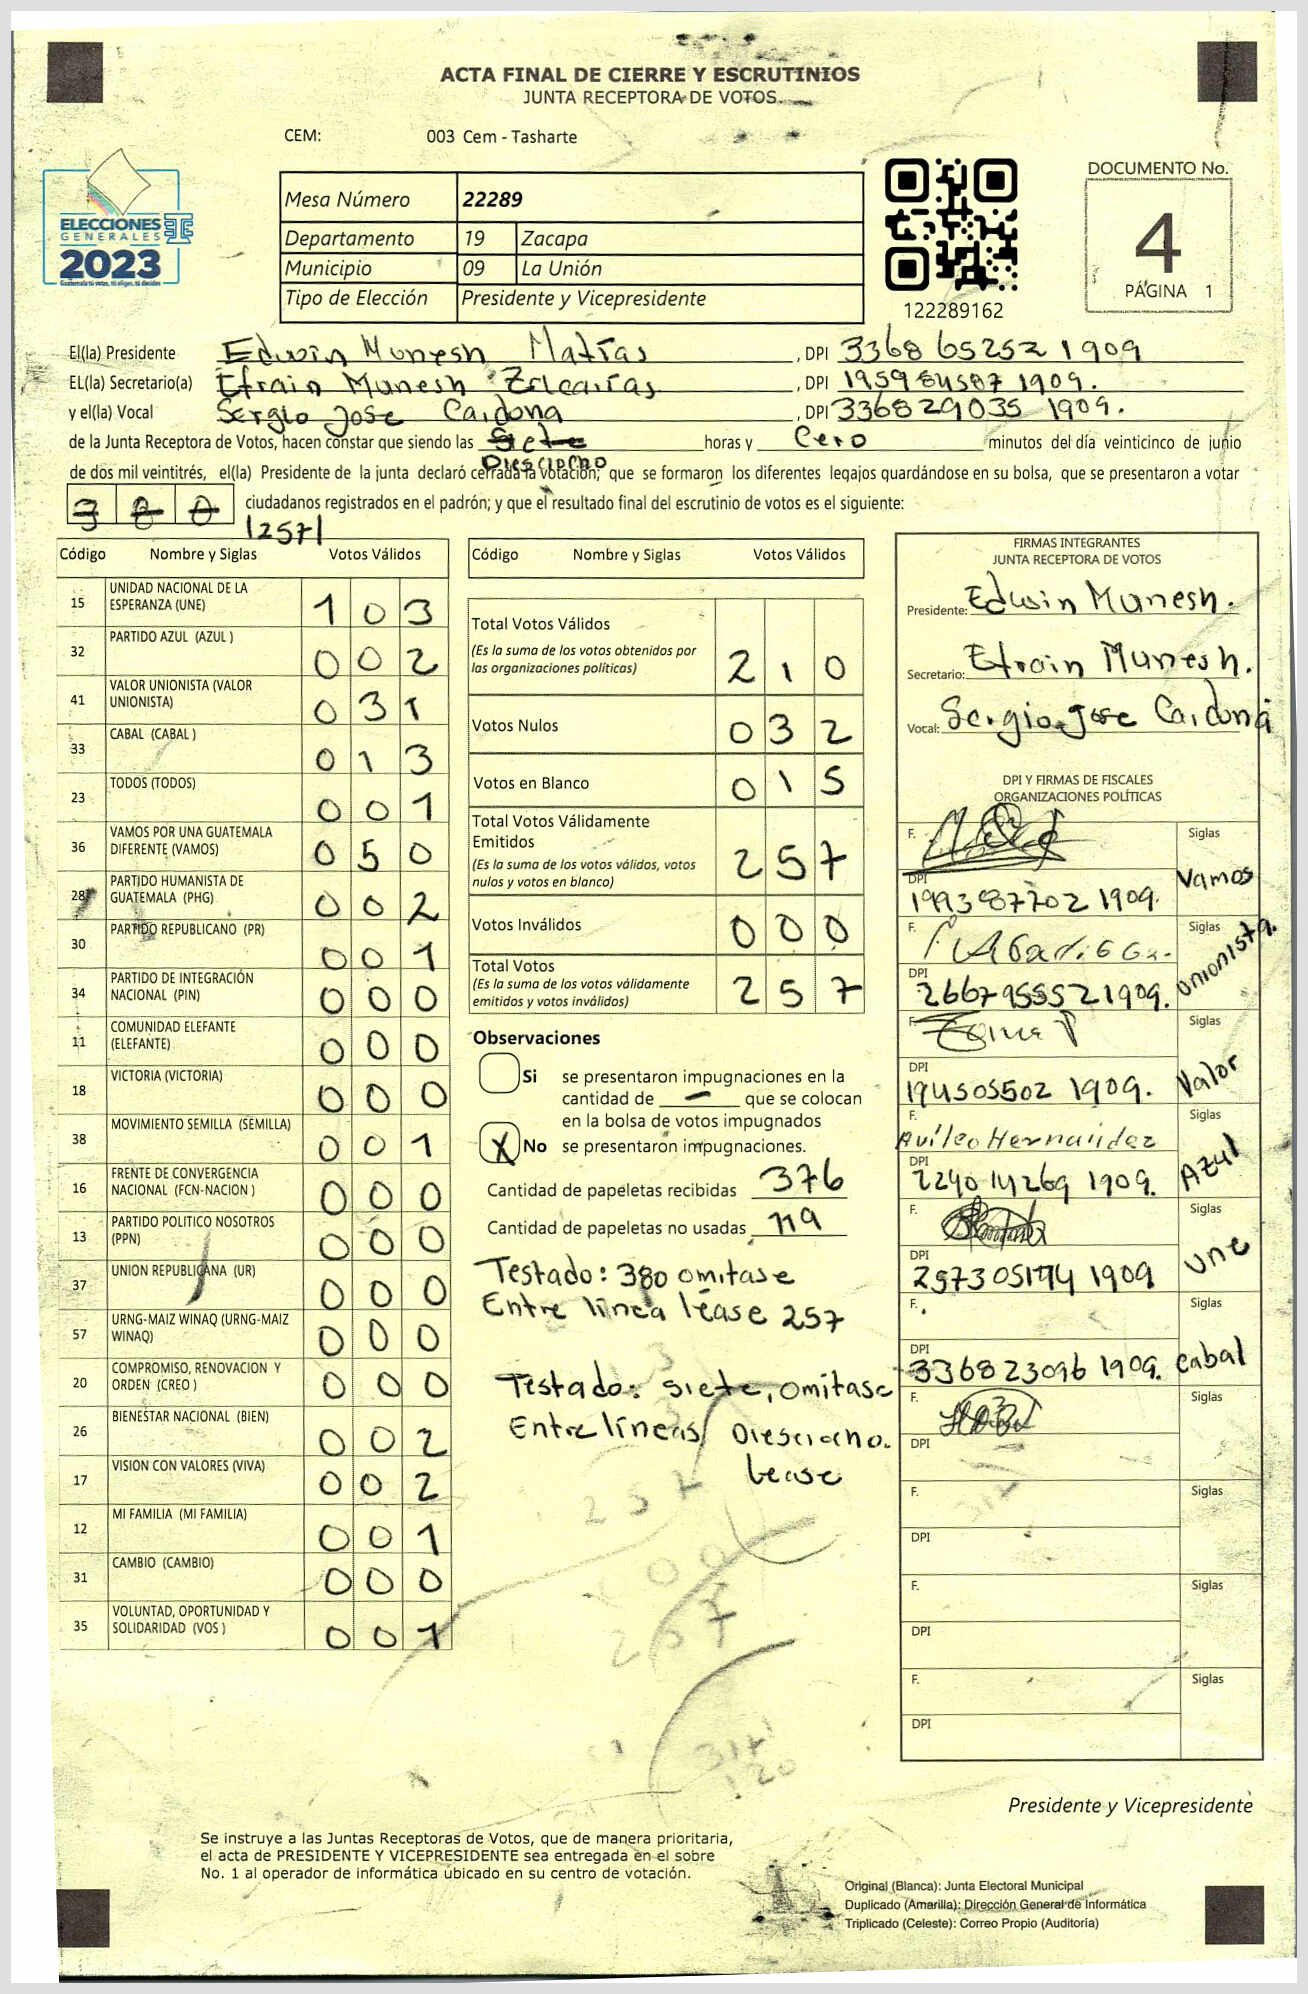 ACTA FINAL DE CIERRE Y ESCRUTINIOS
JUNTA RECEPTORA DE VOTOS.
CEM: 003 Cem - Tasharte
DOCUMENTO No.
4
PÁGINA 1
ELECCIONES
GENERALES
2023
Guatemala tú votas, tú eliges, tú decides
Mesa Número 22289
Departamento 19 Zacapa
Municipio 09 La Unión
Tipo de Elección Presidente y Vicepresidente
122289162
El(la) Presidente Edwin Munesh Matías , DPI 3368 65252 1909
EL(la) Secretario(a) Efrain Munesh , DPI 1959 84587 1909.
y el(la) Vocal Sergio Jose Cardona , DPI 3368 29035 1909.
de la Junta Receptora de Votos, hacen constar que siendo las Siete horas y Cero minutos del día veinticinco de junio
Diesciocho
de dos mil veintitrés, el(la) Presidente de la junta declaró cerrada la votación; que se formaron los diferentes legajos quardándose en su bolsa, que se presentaron a votar
380 ciudadanos registrados en el padrón; y que el resultado final del escrutinio de votos es el siguiente:
|257|
Código Nombre y Siglas Votos Válidos
15 UNIDAD NACIONAL DE LA ESPERANZA (UNE) 1 0 3
32 PARTIDO AZUL (AZUL ) 0 0 2
41 VALOR UNIONISTA (VALOR UNIONISTA) 0 3 1
33 CABAL (CABAL ) 0 1 3
23 TODOS (TODOS) 0 0 1
36 VAMOS POR UNA GUATEMALA DIFERENTE (VAMOS) 0 5 0
28 PARTIDO HUMANISTA DE GUATEMALA (PHG) 0 0 2
30 PARTIDO REPUBLICANO (PR) 0 0 1
34 PARTIDO DE INTEGRACIÓN NACIONAL (PIN) 0 0 0
11 COMUNIDAD ELEFANTE (ELEFANTE) 0 0 0
18 VICTORIA (VICTORIA) 0 0 0
38 MOVIMIENTO SEMILLA (SEMILLA) 0 0 1
16 FRENTE DE CONVERGENCIA NACIONAL (FCN-NACION ) 0 0 0
13 PARTIDO POLITICO NOSOTROS (PPN) 0 0 0
37 UNION REPUBLICANA (UR) 0 0 0
57 URNG-MAIZ WINAQ (URNG-MAIZ WINAQ) 0 0 0
20 COMPROMISO, RENOVACION Y ORDEN (CREO ) 0 0 0
26 BIENESTAR NACIONAL (BIEN) 0 0 2
17 VISION CON VALORES (VIVA) 0 0 2
12 MI FAMILIA (MI FAMILIA) 0 0 1
31 CAMBIO (CAMBIO) 0 0 0
35 VOLUNTAD, OPORTUNIDAD Y SOLIDARIDAD (VOS ) 0 0 1
Código Nombre y Siglas Votos Válidos
Total Votos Válidos 2 1 0
(Es la suma de los votos obtenidos por
las organizaciones políticas)
Votos Nulos 0 3 2
Votos en Blanco 0 1 5
Total Votos Válidamente
Emitidos 2 5 7
(Es la suma de los votos válidos, votos
nulos y votos en blanco)
Votos Inválidos 0 0 0
Total Votos 2 5 7
(Es la suma de los votos válidamente
emitidos y votos inválidos)
Observaciones
Si se presentaron impugnaciones en la
cantidad de — que se colocan
en la bolsa de votos impugnados
X No se presentaron impugnaciones.
Cantidad de papeletas recibidas 376
Cantidad de papeletas no usadas 119
Testado: 380 omitase
Entre línea léase 257
Testado: siete, omitase
Entre líneas Diesciocho.
Lease
257
257
FIRMAS INTEGRANTES
JUNTA RECEPTORA DE VOTOS
Presidente: Edwin Munesh.
Secretario: Efrain Munesh.
Vocal: Sergio Jose Cardona
DPI Y FIRMAS DE FISCALES
ORGANIZACIONES POLÍTICAS
F. Siglas
Vamos
DPI
1993 87702 1909.
F. Siglas
Unionista.
DPI
2667 95552 1909.
F. Siglas
Valor
DPI
1945 05502 1909.
F. Siglas
Avileo Hernandez
Azul
DPI
2240 14269 1909.
F. Siglas
Une
DPI
2573 05194 1909
F. Siglas
DPI
3368 23096 1909. Cabal
F. Siglas
DPI
F. Siglas
DPI
F. Siglas
DPI
F. Siglas
DPI
Presidente y Vicepresidente
Se instruye a las Juntas Receptoras de Votos, que de manera prioritaria,
el acta de PRESIDENTE Y VICEPRESIDENTE sea entregada en el sobre
No. 1 al operador de informática ubicado en su centro de votación.
Original (Blanca): Junta Electoral Municipal
Duplicado (Amarilla): Dirección General de Informática
Triplicado (Celeste): Correo Propio (Auditoría)